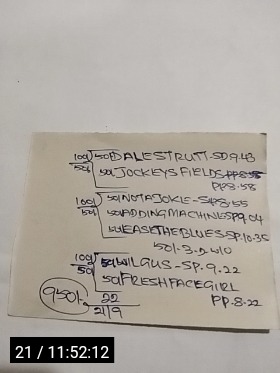 100/50/ 50/DALESTRUTT-SD9.43
50/JOCKEYSFIELDS
PP8.58
100/50/ 50/NOTAJOKE-SP8.55
50/ADDINGMACHINESP9.04
50/EASETHEBLUESSP.10.35
50/-3.2.W10
100/50 50/WILGUS-SP.9.22
50/FRESHFACEGIRL
PP.8.22
950/- 22
21/9
21 / 11:52:12